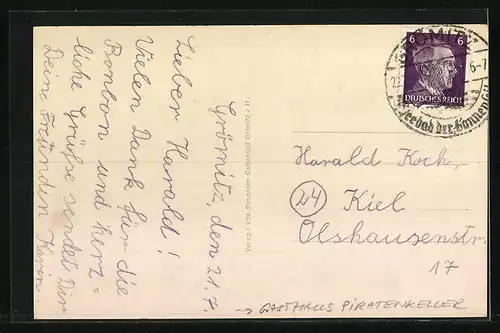 Grömitz, den 21.7.
Lieber Harald!
Vielen Dank für die
Bonbon und herz=
liche Grüße sendet Dir
Deine Freundin Karin.
GRÖMITZ
6 6
DEUTSCHES REICH
22.
6-7
Seebad der Sonnen
Harald Koch,
24 Kiel
Olshausenstr.
17
→ GASTHAUS PIRATENKELLER